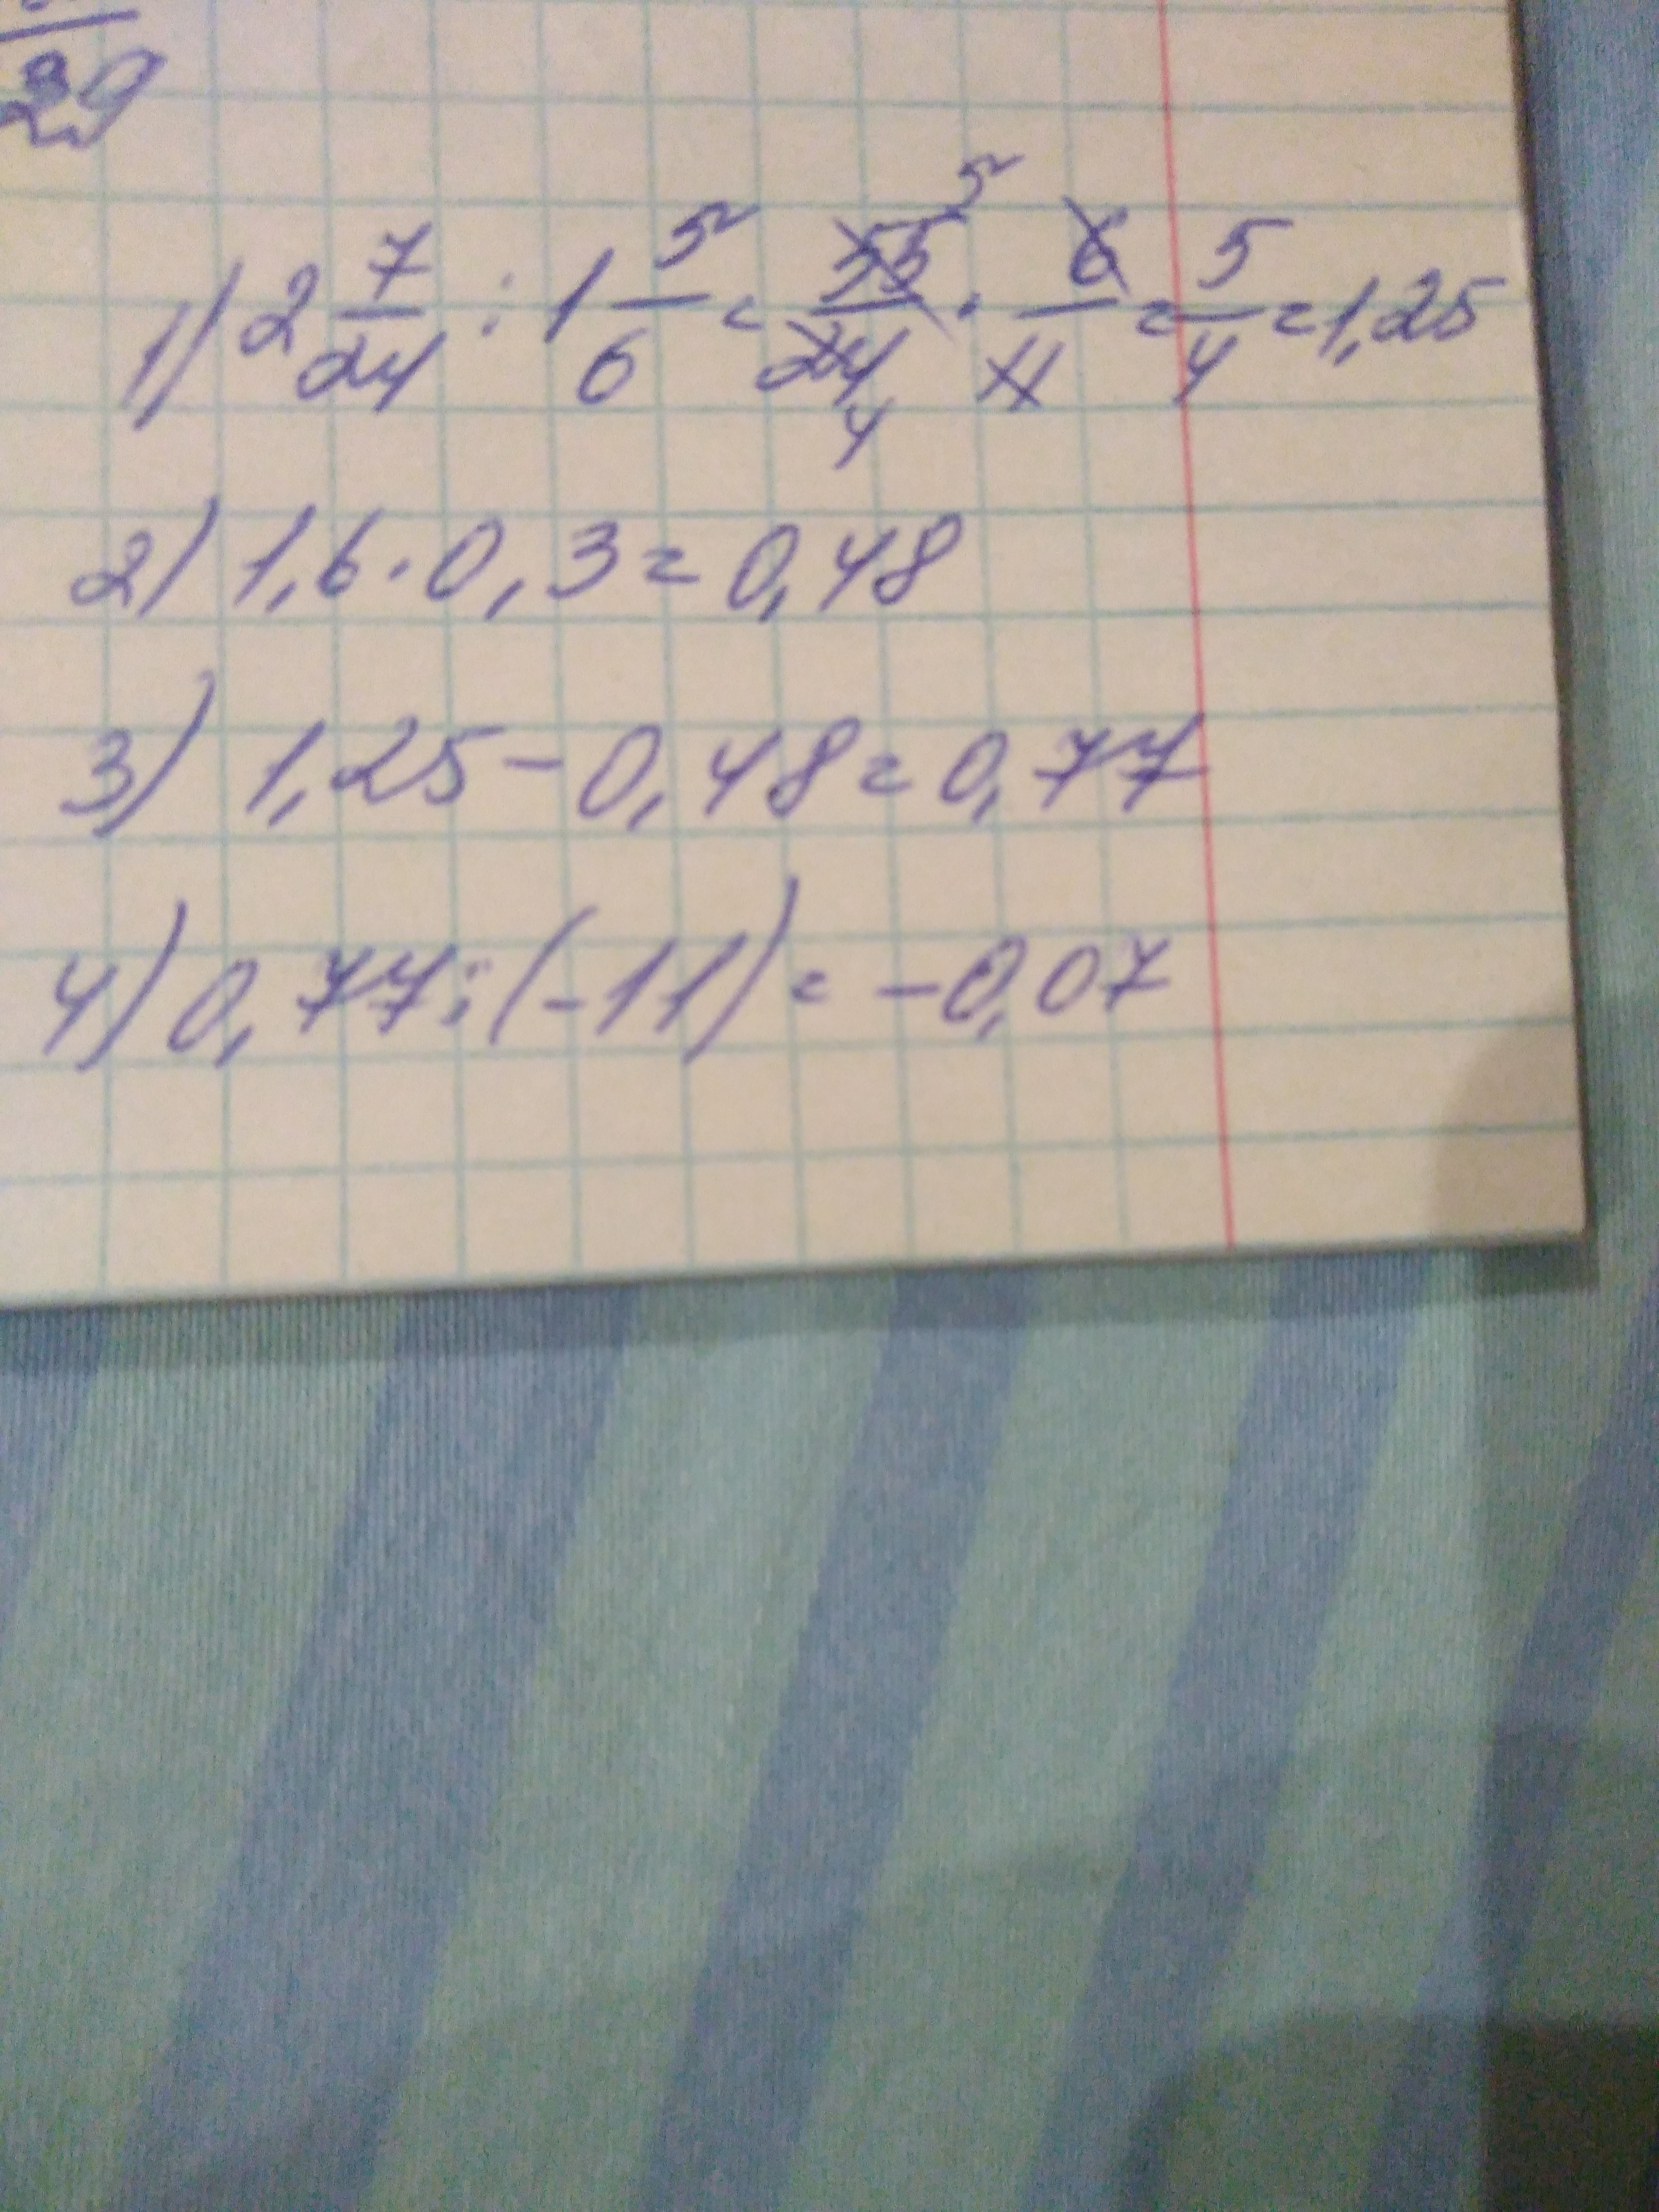 29
1) 2 7/24 : 1 5/6 = 55/24 5 4 · 6/11 = 5/4 = 1,25
2) 1,6 · 0,3 = 0,48
3) 1,25 - 0,48 = 0,77
4) 0,77 : (-11) = -0,07